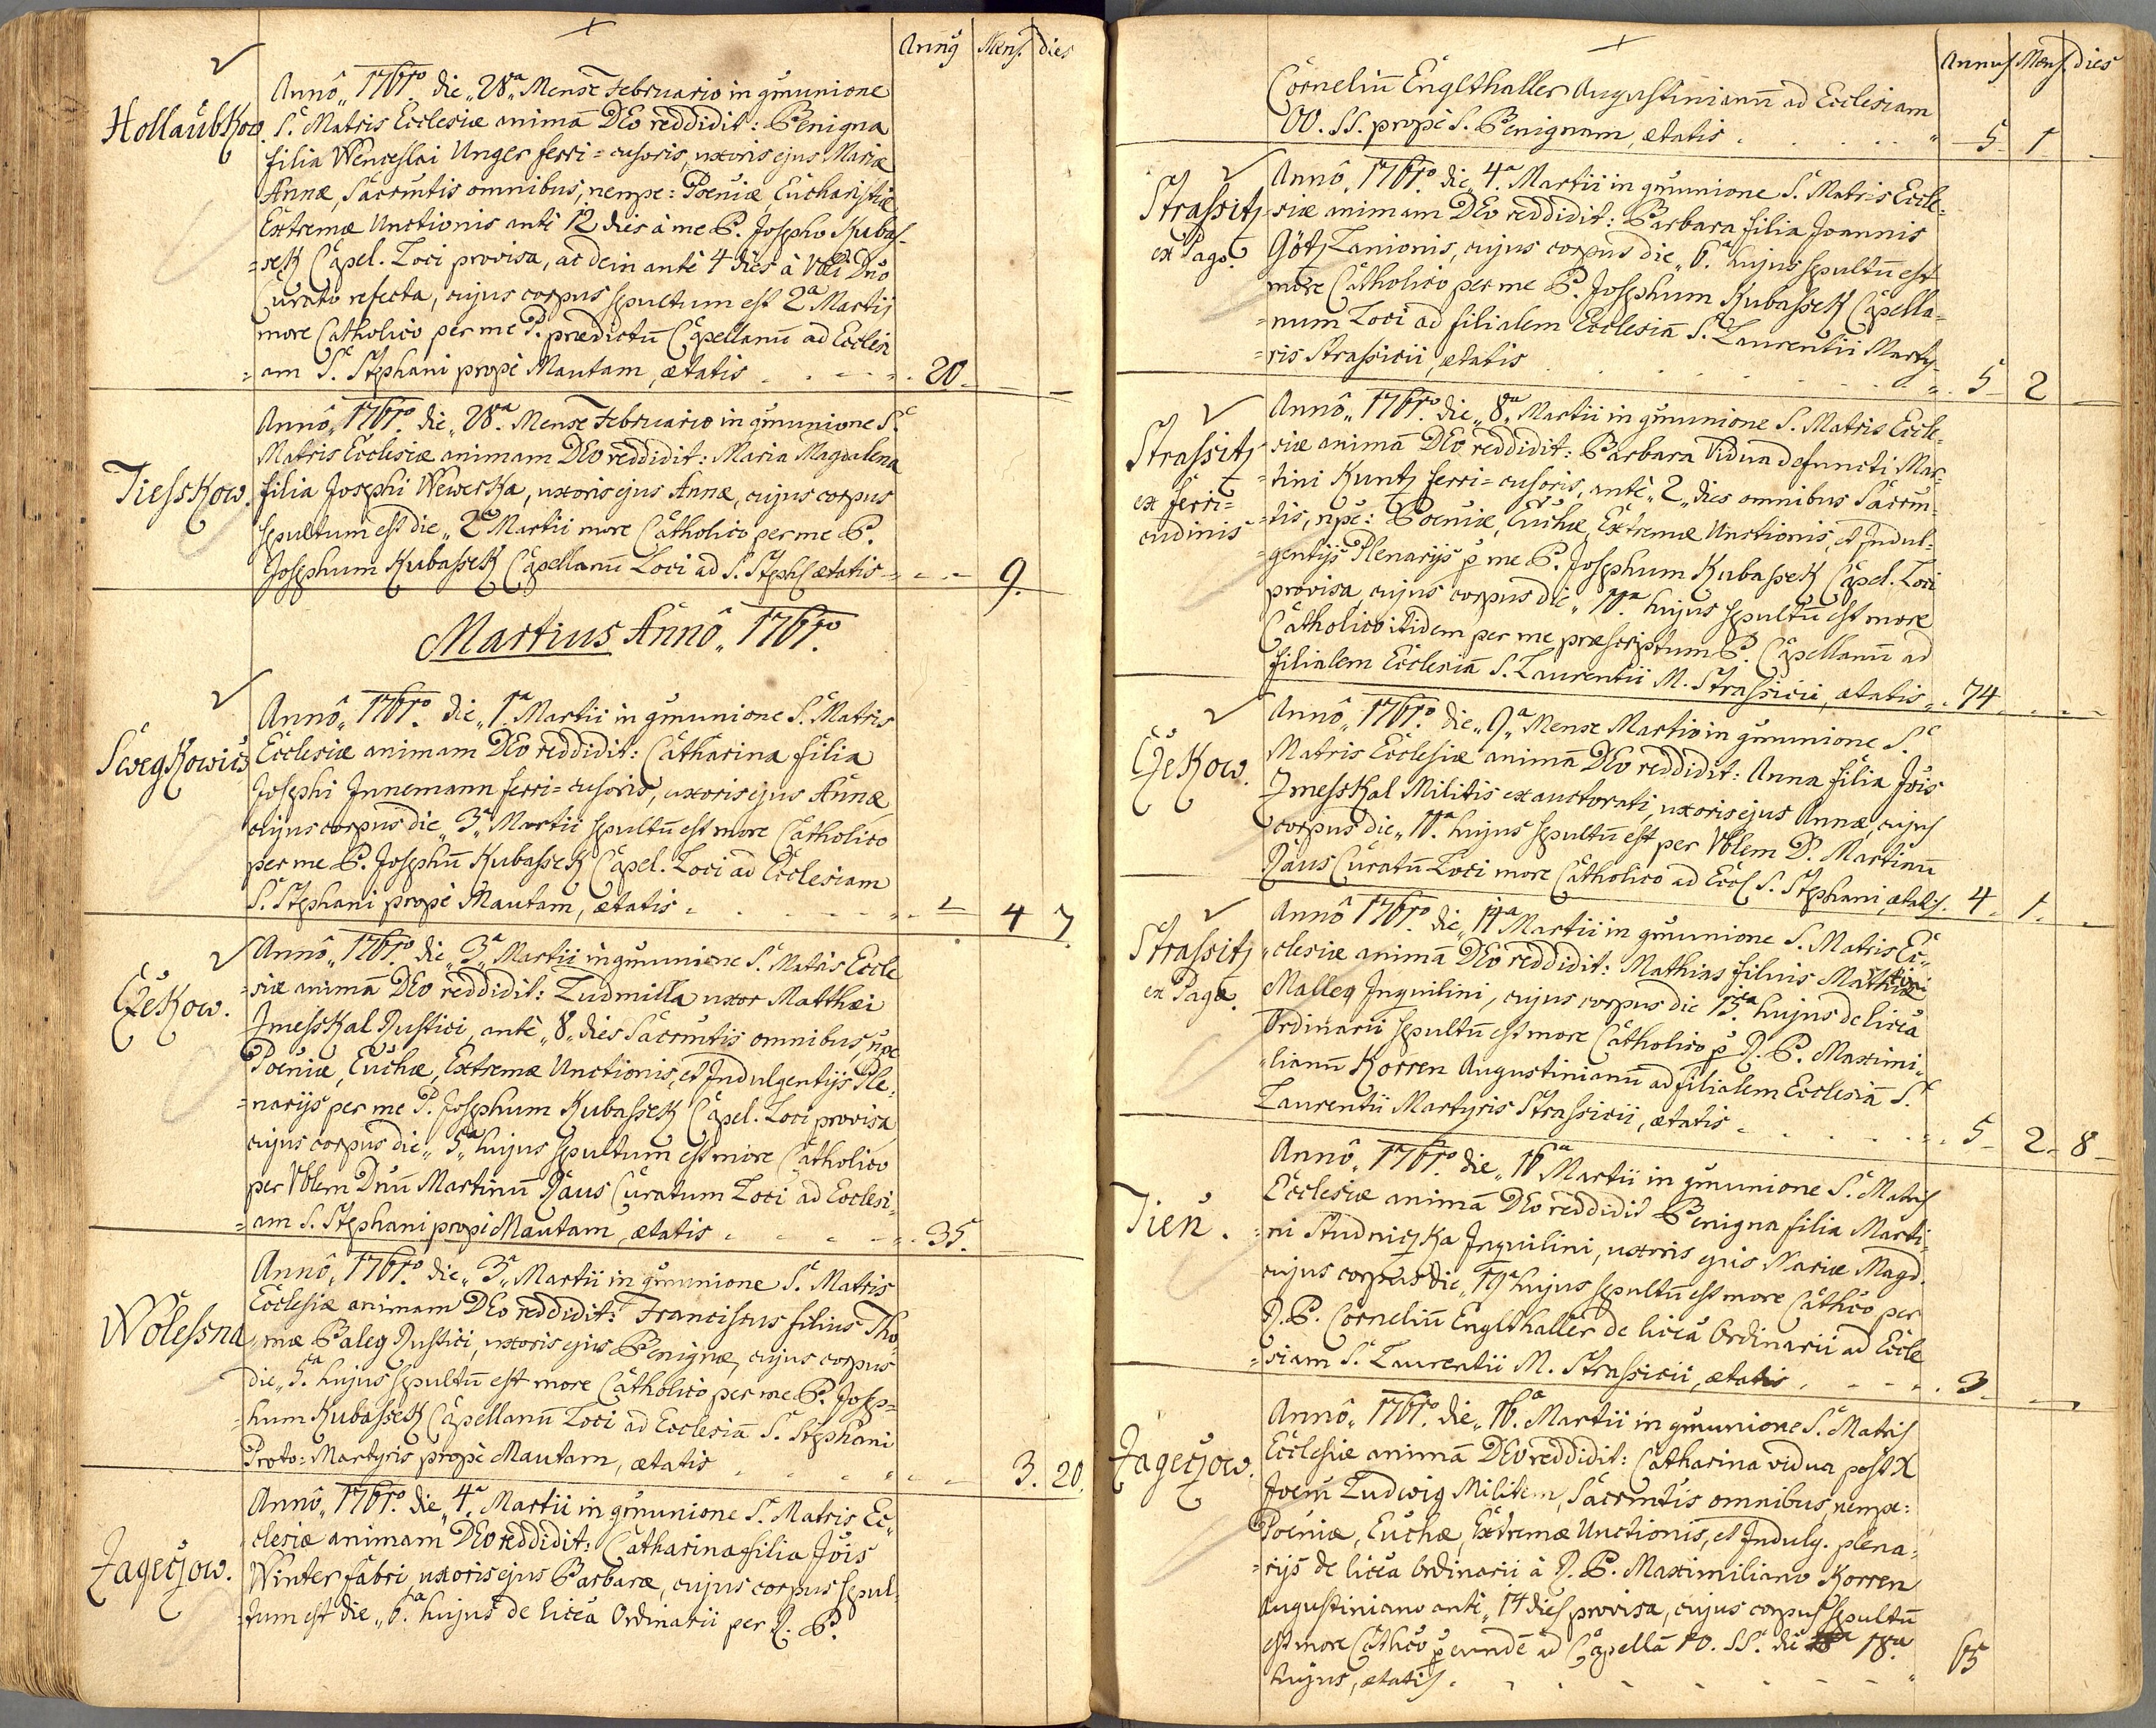 Annꝰ Mens. dies
Annô„ 1761mo. die „28a„ Mense Februario in gmunione
Hollaubkow. S. Matris Ecclesiæ animã DEo reddidit: Benigna
filia Wenceslai Unger ferri=cusoris, uxoris ejus Mariæ
Annæ, Sacrmtis omnibus, nempe: Poeniæ, Eucharistiæ
Extremæ Unctionis antè 12 dies à me P. Josepho Kubas-
=sek Capel. Loci provisa, ac dein antè 4 dies à Vbli Dno
Curato refecta, cujus corpus sepultum est 2a Martij
more Catholico per me P. prædictũ Capellanũ ad Ecclesi
=am S. Stephani propè Mautam, ætatis 20.
Annô„ 1761mo. die „28a. Mense Februario in gmunione S.
Matris Ecclesiæ animam DEo reddidit: Maria Magdalena
Tiesskow. filia Josephi Wewerka, uxoris ejus Annæ, cujus corpus
sepultum est die „2a Martii more Catholico per me P.
Josephum Kubassek Capellanũ Loci ad S. Steph. ætatis 9.
Martius Annô„ 1761mo.
Annô„ 1761mo. die „1a. Martii in gmunione S. Matris
Swegkowic Ecclesiæ animam DEo reddidit: Catharina filia
Josephi Innemann ferri=cusoris, uxoris ejus Annæ
cujus corpus die „3„ Martii sepultũ est more Catholico
per me P. Josephũ Kubassek Capel. Loci ad Ecclesiam
S. Stephani propè Mautam, ætatis 4 7.
Annô„ 1761mo. die „3a„ Martii in gmunione S. Matris Eccle
Cžekow. =siæ animã DEo reddidit: Ludmilla uxor Matthæi
Zmesskal Rustici, antè „8„ dies Sacrmtis omnibus, npe
Poeniæ, Euchæ, Extremæ Unctionis, et Indulgentijs Ple-
=narijs per me P. Josephum Kubassek Capel. Loci provisa
cujus corpus die „5„a hujus sepultum est more Catholico
per Vblem Dnũ Martinũ Raus Curatum Loci ad Ecclesi-
=am S. Stephani propè Mautam, ætatis 35.
Annô„ 1761mo. die „3a„ Martii in gmunione S. Matris
Ecclesiæ animam DEo reddidit: Franciscus filius Tho-
Wolessna =mæ Baleg Rustici, uxoris ejus Benignæ, cujus corpus
die „5.a hujus sepultũ est more Catholico per me P. Josep=
=hum Kubassek Capellanũ Loci ad Ecclesiã S. Stephani
Proto=Martyris propè Mautam, ætatis 3. 20.
Annô„ 1761mo. die „4a. Martii in gmunione S. Matris Ec-
clesiæ animam DEo reddidit: Catharina filia Jois
Zagečow. Winter fabri, uxoris ejus Barbaræ, cujus corpus sepul-
=tum est die „6.a hujus de licẽa Ordinarii per R. P.
Annus Mens. dies
Corneliũ Englthaller Augustinianũ ad Ecclesiam
OO. SS. propè S. Benignam, ætatis 5 1
Annô„ 1761mo. die „4a. Martii in gmunione S. Matris Eccle-
Strassitz =siæ animam DEo reddidit: Barbara filia Joannis
ex Pago. Götz Lanionis, cujus corpus die „6.a hujus sepultũ est
more Catholico per me P. Josephum Kubassek Capella-
=num Loci ad filialem Ecclesiã S. Laurentii Marty-
=ris Strassicii, ætatis 5 2
Annô„ 1761mo. die „8a„ Martii in gmunione S. Matris Eccle-
Strassitz =siæ animã DEo reddidit: Barbara Vidua defuncti Mar-
=tini Kuntz ferri=cusoris, antè „2„ dies omnibus Sacrm-
ex ferri=
cudinis =tis, npe: Poeniæ, Euchæ, Extremæ Unctionis, et Indul-
=gentijs Plenarijs p me P. Josephum Kubassek Capel. Loci
provisa, cujus corpus die „10.a hujus sepultũ est more
Catholico itidem per me præscriptum P. Capellanũ ad
filialem Ecclesiã S. Laurentii M. Strassicii, ætatis 74
Annô„ 1761mo. die „9a„ Mense Martio in gmunione S.
Cžekow. Matris Ecclesiæ animã DEo reddidit: Anna filia Jois
Zmesskal Militis exauctorati, uxoris ejus Annæ, cujus
corpus die „11.a hujus sepultũ est per Vblem D. Martinũ
Raus Curatũ Loci more Catholico ad Eccl. S. Stephani, ætatis. 4 1.
Annô 1761mo. die „11a Martii in gmunione S. Matris Ec-
Strassitz clesiæ animã DEo reddidit: Mathias filius Mathiæ
ex Pago. Malleg Inquilini, cujus corpus die 13.a hujus de licẽa
Ordinarii sepultũ est more Catholico p R. P. Maximi-
=lianũ Korren Augustinianũ ad filialem Ecclesiã S.
Laurentii Martyris Strassicii, ætatis 5 2. 8
Annô„ 1761mo. die „16a Martii in gmunione S. Matris
Ecclesiæ animã DEo reddidit Benigna filia Marti-
Tieň. =ni Studniczka Inquilini, uxoris ejus Mariæ Magd.
cujus corpus die „19a hujus sepultũ est more Cathco per
R. P. Corneliũ Englthaller de licẽa Ordinarii ad Eccle
=siam S. Laurentii M. Strassicii, ætatis 3
Annô„ 1761mo. die „16.a Martii in gmunione S. Matris
Zagečow. Ecclesiæ animã DEo reddidit: Catharina vidua post X
Joem Ludwig Militem, Sacrmtis omnibus, nempe:
Poeniæ, Euchæ, Extremæ Unctionis, et Indulg. plena-
=rijs de licẽa Ordinarii à R. P. Maximiliano Korren
Augustiniano antè „14 dies provisa, cujus corpus sepultũ
est more Cathco p eundẽ ad Capellã OO. SS. die 18.a
hujus, ætatis 65